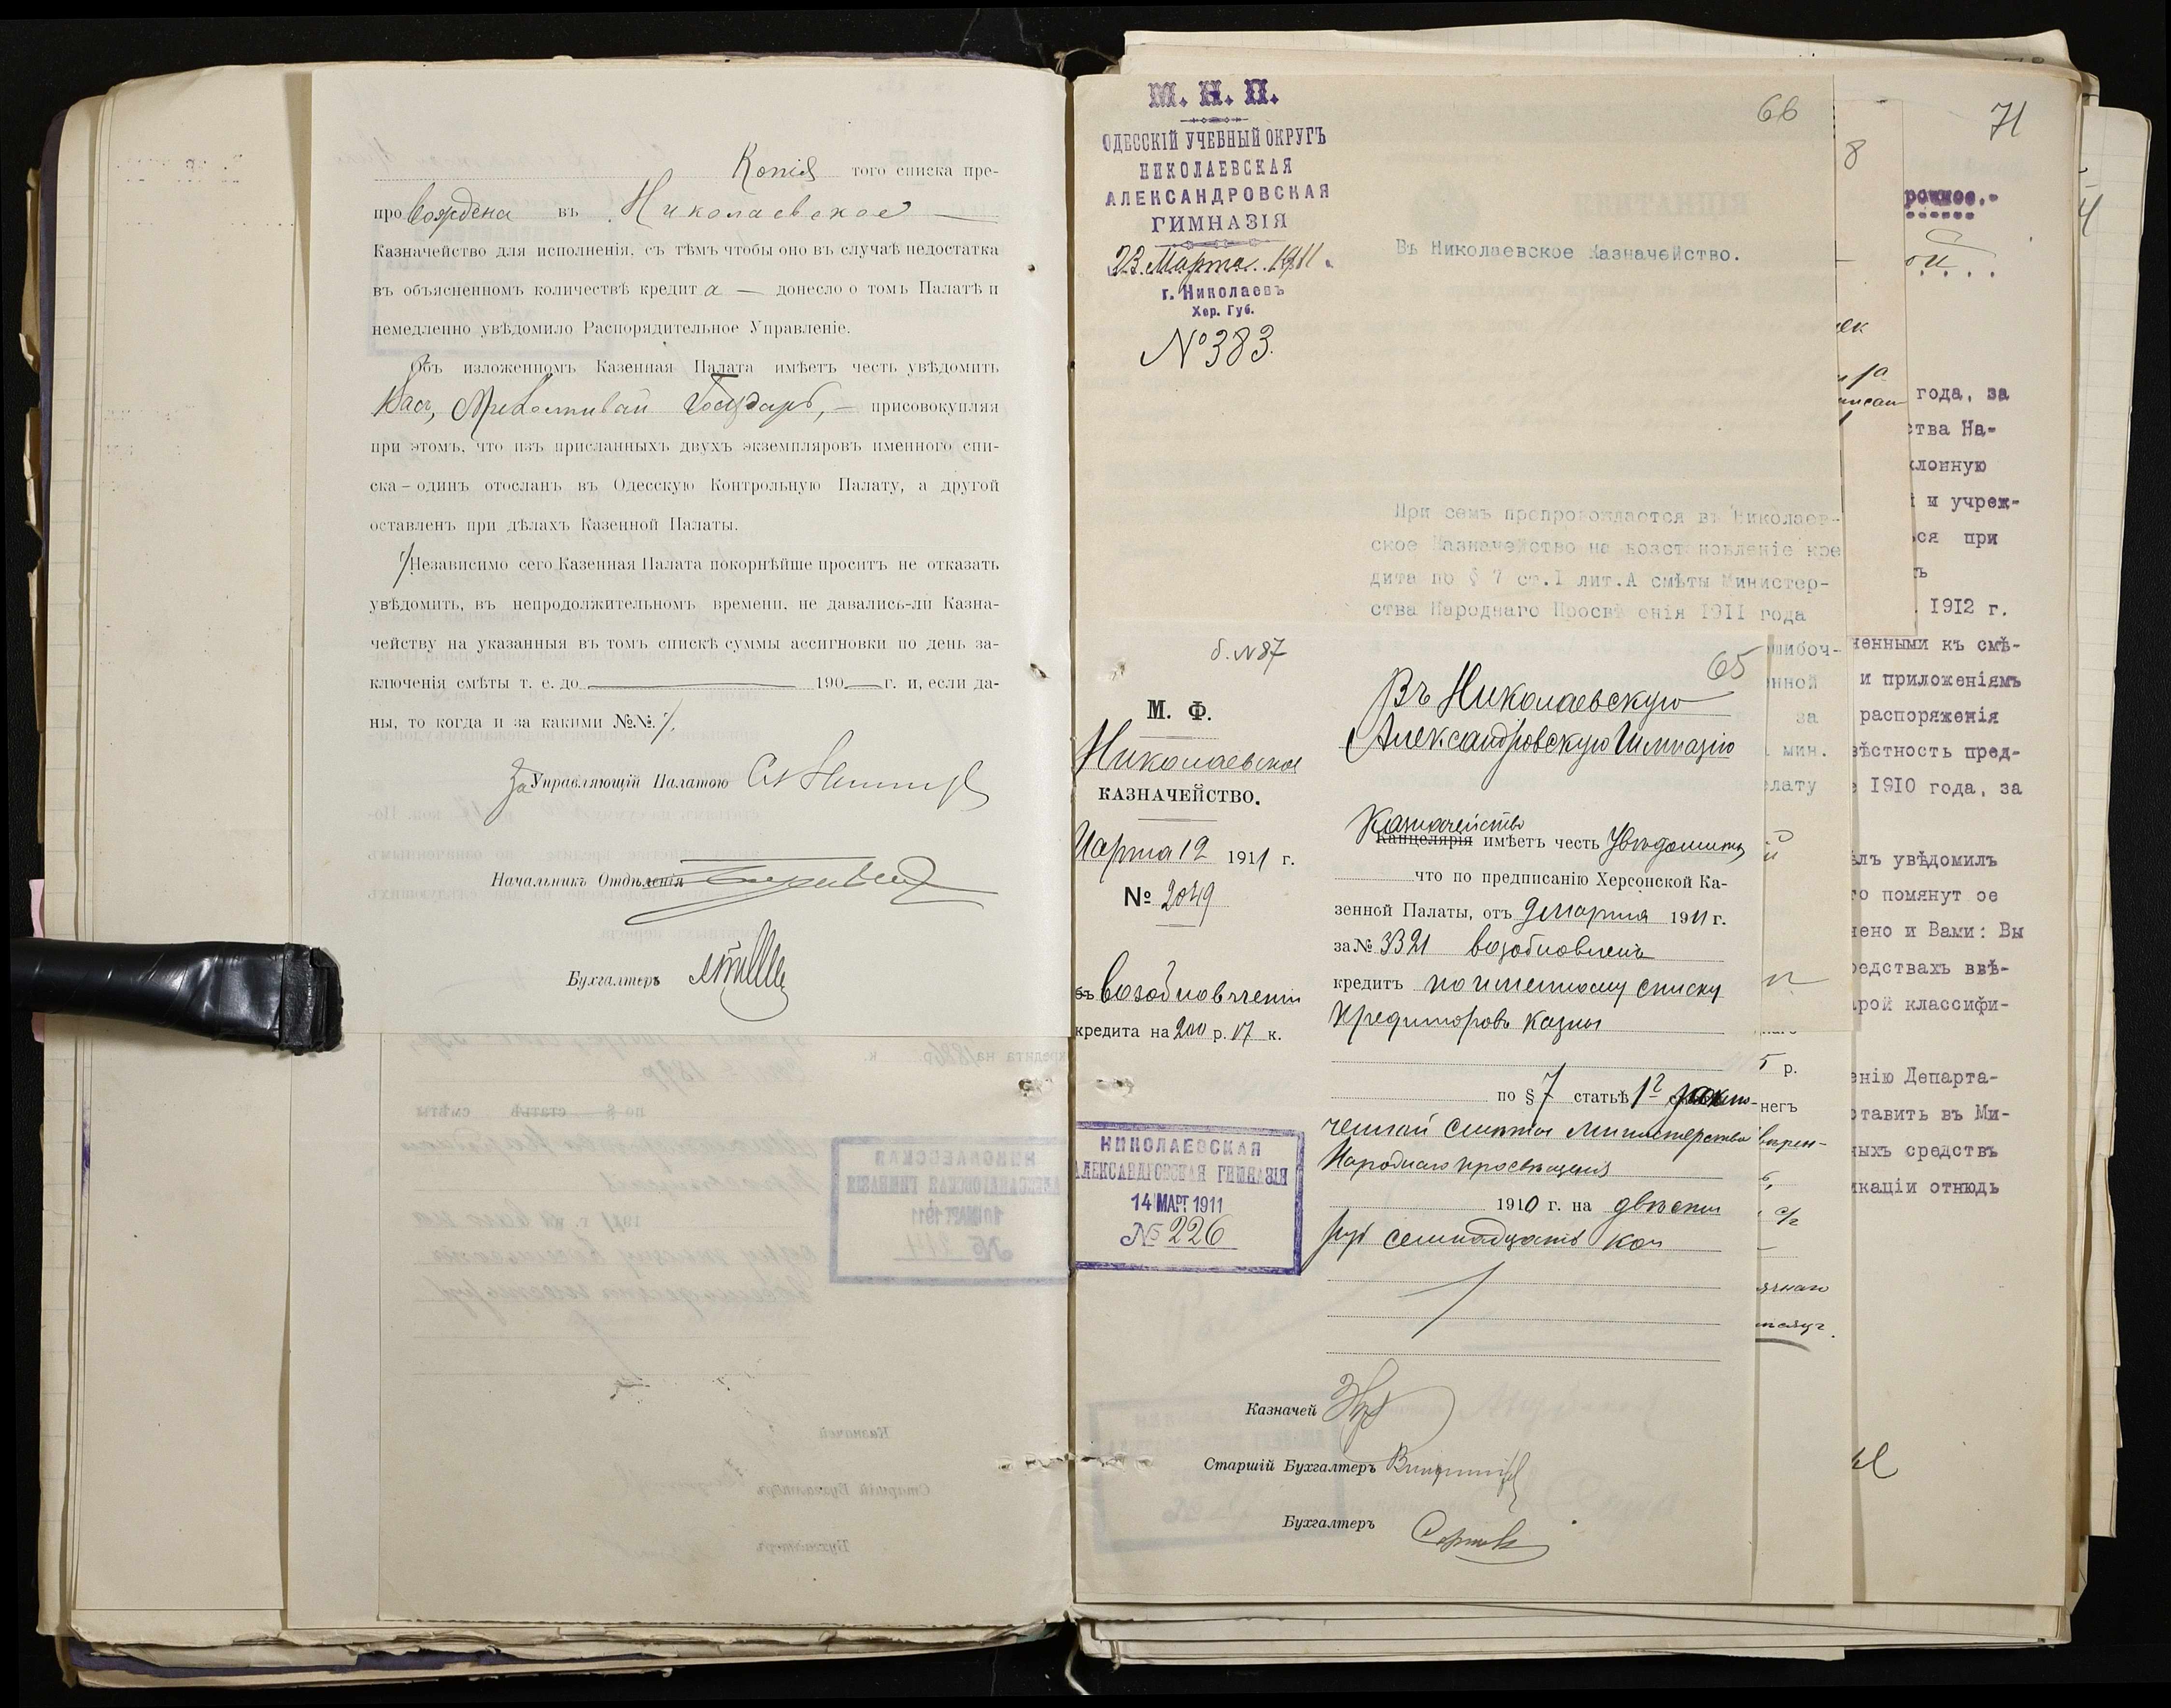 Копія того списка пре-
провождена въ Николаевское
Казначейство для исполненія, съ тѣмъ чтобы оно въ случаѣ недостатка
въ объясненномъ количествѣ кредита — донесло о томъ Палатѣ и
немедленно увѣдомило Распорядительное Управленіе.
Объ изложенномъ Казенная Палата имѣетъ честь увѣдомить
Васъ, Милостивый Государь, — присовокупляя
при этомъ, что изъ присланныхъ двухъ экземпляровъ именного спи-
ска – одинъ отосланъ въ Одесскую Контрольную Палату, а другой
оставленъ при дѣлахъ Казенной Палаты.
Независимо сего Казенная Палата покорнѣйше проситъ не отказать
увѣдомить, въ непродолжительномъ времени, не давались-ли Казна-
чейству на указанныя въ томъ спискѣ суммы ассигновки по день за-
ключенія смѣты т. е. до 190 г. и, если да-
ны, то когда и за какими №№.
За Управляющій Палатою
Начальникъ Отдѣленія
Бухгалтеръ
М. Н. П.
ОДЕССКІЙ УЧЕБНЫЙ ОКРУГЪ
НИКОЛАЕВСКАЯ
АЛЕКСАНДРОВСКАЯ
ГИМНАЗІЯ
23 Марта 1911
г. Николаевъ
Хер. Губ.
№ 383.
66
Въ Николаевское Казначейство.
При семъ препровождается въ Николаев-
ское Казначейство на возстановленіе кре
дита по § 7 ст.I лит.А смѣты Министер-
ства Народнаго Просвѣщенія 1911 года
б. № 87
65
М. Ф.
Николаевское
КАЗНАЧЕЙСТВО.
Марта 12 1911 г.
№ 2049
объ возобновленіи
кредита на 200 р. 17 к.
НИКОЛАЕВСКАЯ
АЛЕКСАНДРОВСКАЯ ГИМНАЗІЯ
14 МАР 1911
№ 226
Въ Николаевскую
Александровскую Гимназію
Казначейство
Канцелярія имѣетъ честь увѣдомить
что по предписанію Херсонской Ка-
зенной Палаты, отъ 9 марта 1911 г.
за № 3321 возобновленъ
кредитъ по именному списку
кредиторовъ казны
по § 7 статьѣ 1й заклю-
ченной смѣты Министерства
Народнаго Просвѣщенія
1910 г. на двѣсти
руб семнадцать коп
Казначей
Старшій Бухгалтеръ
Бухгалтеръ
8
71
рочное.-
года, за
ства На-
клонную
и учреж-
ся при
1912 г.
ченными къ смѣ-
и приложеніямъ
распоряженія
вѣстность пред-
1910 года, за
лъ увѣдомилъ
го помянут ое
чено и Вами: Вы
редствахъ ввѣ-
рой классифи-
енію Департа-
ставить въ Ми-
ныхъ средствъ
икаціи отнюдь
ошибоч-
нной
за
мин.
алату
р.
негъ